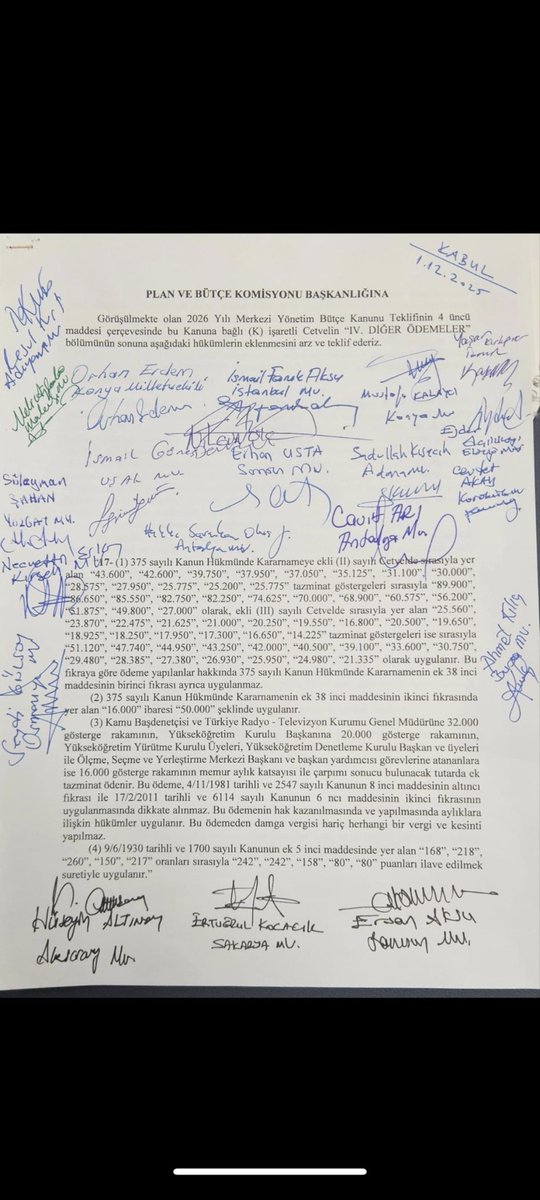 KABUL
1.12.2025
PLAN VE BÜTÇE KOMİSYONU BAŞKANLIĞINA
Görüşülmekte olan 2026 Yılı Merkezi Yönetim Bütçe Kanunu Teklifinin 4 üncü
maddesi çerçevesinde bu Kanuna bağlı (K) işaretli Cetvelin “IV. DİĞER ÖDEMELER”
bölümünün sonuna aşağıdaki hükümlerin eklenmesini arz ve teklif ederiz.
Orhan Erdem
Konya Milletvekili
İsmail Faruk Aksu
İstanbul Mv.
Mustafa KALAYCI
Konya Mv
Erhan USTA
Samsun Mv.
Sadullah Kısacık
Adana Mv.
Cevdet
AKAY
Karabük Mv
Süleyman
ŞAHAN
YOZGAT MV.
Cavit ARI
Antalya Mv.
Antalya Mv.
“17- (1) 375 sayılı Kanun Hükmünde Kararnameye ekli (II) sayılı Cetvelde sırasıyla yer
alan “43.600”, “42.600”, “39.750”, “37.950”, “37.050”, “35.125”, “31.100”, “30.000”,
“28.575”, “27.950”, “25.775”, “25.200”, “25.775” tazminat göstergeleri ise sırasıyla “89.900”,
“86.650”, “85.550”, “82.750”, “82.250”, “74.625”, “70.000”, “68.900”, “60.575”, “56.200”,
“51.875”, “49.800”, “27.000” olarak, ekli (III) sayılı Cetvelde sırasıyla yer alan “25.560”,
“23.870”, “22.475”, “21.625”, “21.000”, “20.250”, “19.550”, “16.800”, “20.500”, “19.650”,
“18.925”, “18.250”, “17.950”, “17.300”, “16.650”, “14.225” tazminat göstergeleri ise sırasıyla
“51.120”, “47.740”, “44.950”, “43.250”, “42.000”, “40.500”, “39.100”, “33.600”, “30.750”,
“29.480”, “28.385”, “27.380”, “26.930”, “25.950”, “24.980”, “21.335” olarak uygulanır. Bu
fıkraya göre ödeme yapılanlar hakkında 375 sayılı Kanun Hükmünde Kararnamenin ek 38 inci
maddesinin birinci fıkrası ayrıca uygulanmaz.
(2) 375 sayılı Kanun Hükmünde Kararnamenin ek 38 inci maddesinin ikinci fıkrasında
yer alan “16.000” ibaresi “50.000” şeklinde uygulanır.
(3) Kamu Başdenetçisi ve Türkiye Radyo - Televizyon Kurumu Genel Müdürüne 32.000
gösterge rakamının, Yükseköğretim Kurulu Başkanına 20.000 gösterge rakamının,
Yükseköğretim Yürütme Kurulu Üyeleri, Yükseköğretim Denetleme Kurulu Başkan ve üyeleri
ile Ölçme, Seçme ve Yerleştirme Merkezi Başkanı ve başkan yardımcısı görevlerine atananlara
ise 16.000 gösterge rakamının memur aylık katsayısı ile çarpımı sonucu bulunacak tutarda ek
tazminat ödenir. Bu ödeme, 4/11/1981 tarihli ve 2547 sayılı Kanunun 8 inci maddesinin altıncı
fıkrası ile 17/2/2011 tarihli ve 6114 sayılı Kanunun 6 ncı maddesinin ikinci fıkrasının
uygulanmasında dikkate alınmaz. Bu ödemenin hak kazanılmasında ve yapılmasında aylıklara
ilişkin hükümler uygulanır. Bu ödemeden damga vergisi hariç herhangi bir vergi ve kesinti
yapılmaz.
(4) 9/6/1930 tarihli ve 1700 sayılı Kanunun ek 5 inci maddesinde yer alan “168”, “218”,
“260”, “150”, “217” oranları sırasıyla “242”, “242”, “158”, “80”, “80” puanları ilave edilmek
suretiyle uygulanır.”
Hüseyin ALTINSOY
Aksaray Mv.
ERTUĞRUL KOCACIK
SAKARYA MV.
Ersan AKSU
Samsun Mv.